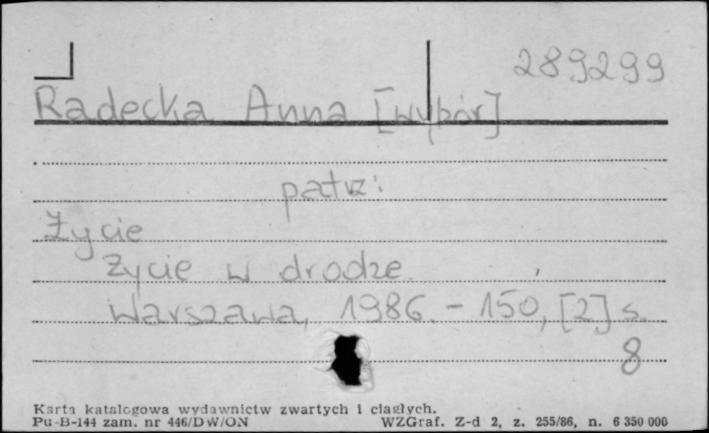 289299
Radecka Anna [wybór]
patrz:
Życie
Życie w drodze.
Warszawa, 1986. - 150, [2] s.
8
Karta katalogowa wydawnictw zwartych i ciągłych.
Pu-B-144 zam. nr 446/DW/ON WZGraf. Z-d 2, z. 255/86, n. 6 350 000